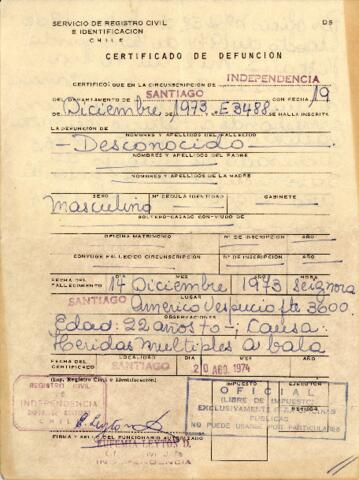 SERVICIO DE REGISTRO CIVIL
E IDENTIFICACION
CHILE
DS
CERTIFICADO DE DEFUNCION
CERTIFICO: QUE EN LA CIRCUNSCRIPCION DE INDEPENDENCIA
DEL DEPARTAMENTO DE SANTIAGO CON FECHA 19
DE Diciembre DE 1973 Y Nº E3488 SE HALLA INSCRITA
LA DEFUNCION DE
NOMBRES Y APELLIDOS DEL FALLECIDO
- Desconocido -
NOMBRES Y APELLIDOS DEL PADRE
NOMBRES Y APELLIDOS DE LA MADRE
SEXO Nº CEDULA IDENTIDAD GABINETE
Masculino
SOLTERO-CASADO CON-VIUDO DE
OFICINA MATRIMONIO Nº DE INSCRIPCION AÑO
CONYUGE FALLECIDO CIRCUNSCRIPCION Nº DE INSCRIPCION AÑO
FECHA DEL FALLECIMIENTO DIA MES AÑO HORA
Diciembre 1973 Se ignora
LUGAR
SANTIAGO Américo Vespucio fte 3600
OBSERVACIONES
Edad: 22 años + o -; Causa:
Heridas multiples a bala
FECHA DEL CERTIFICADO LOCALIDAD DIA MES AÑO
SANTIAGO 20 AGO. 1974
(Imp. Registro Civil e Identificación)
IMPUESTO
REGISTRO CIVIL
E
INDEPENDENCIA
CHILE
OFICIAL
(LIBRE DE IMPUESTO)
EXCLUSIVAMENTE
PUBLICAS
NO PUEDE USARSE POR PARTICULARES
FIRMA Y SELLO DEL FUNCIONARIO AUTORIZADO
EUGENIA LEYTON D.
INDEPENDENCIA